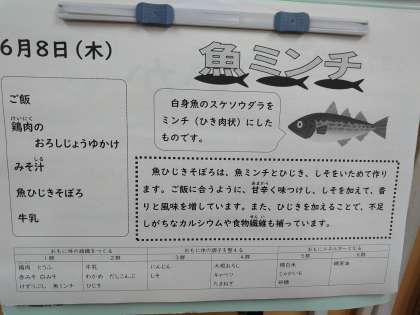 6月8日(木)
魚ミンチ
ご飯
鶏肉の
けいにく
おろしじょうゆかけ
みそ汁
しる
魚ひじきそぼろ
牛乳
白身魚のスケソウダラを
ミンチ(ひき肉状)にした
ものです。
魚ひじきそぼろは、魚ミンチとひじき、しそをいためて作り
ます。ご飯に合うように、甘辛く味つけし、しそを加えて、香
あまから
りと風味を増しています。また、ひじきを加えることで、不足
しがちなカルシウムや食物繊維も補っています。
せんい
おもに体の組織をつくる
おもに体の調子を整える
おもにエネルギーとなる
1群 2群 3群 4群 5群 6群
鶏肉 とうふ 牛乳 にんじん 大根おろし 精白米
赤みそ 白みそ わかめ だしこんぶ しそ キャベツ じゃがいも
けずりぶし 魚ミンチ ひじき たまねぎ 砂糖